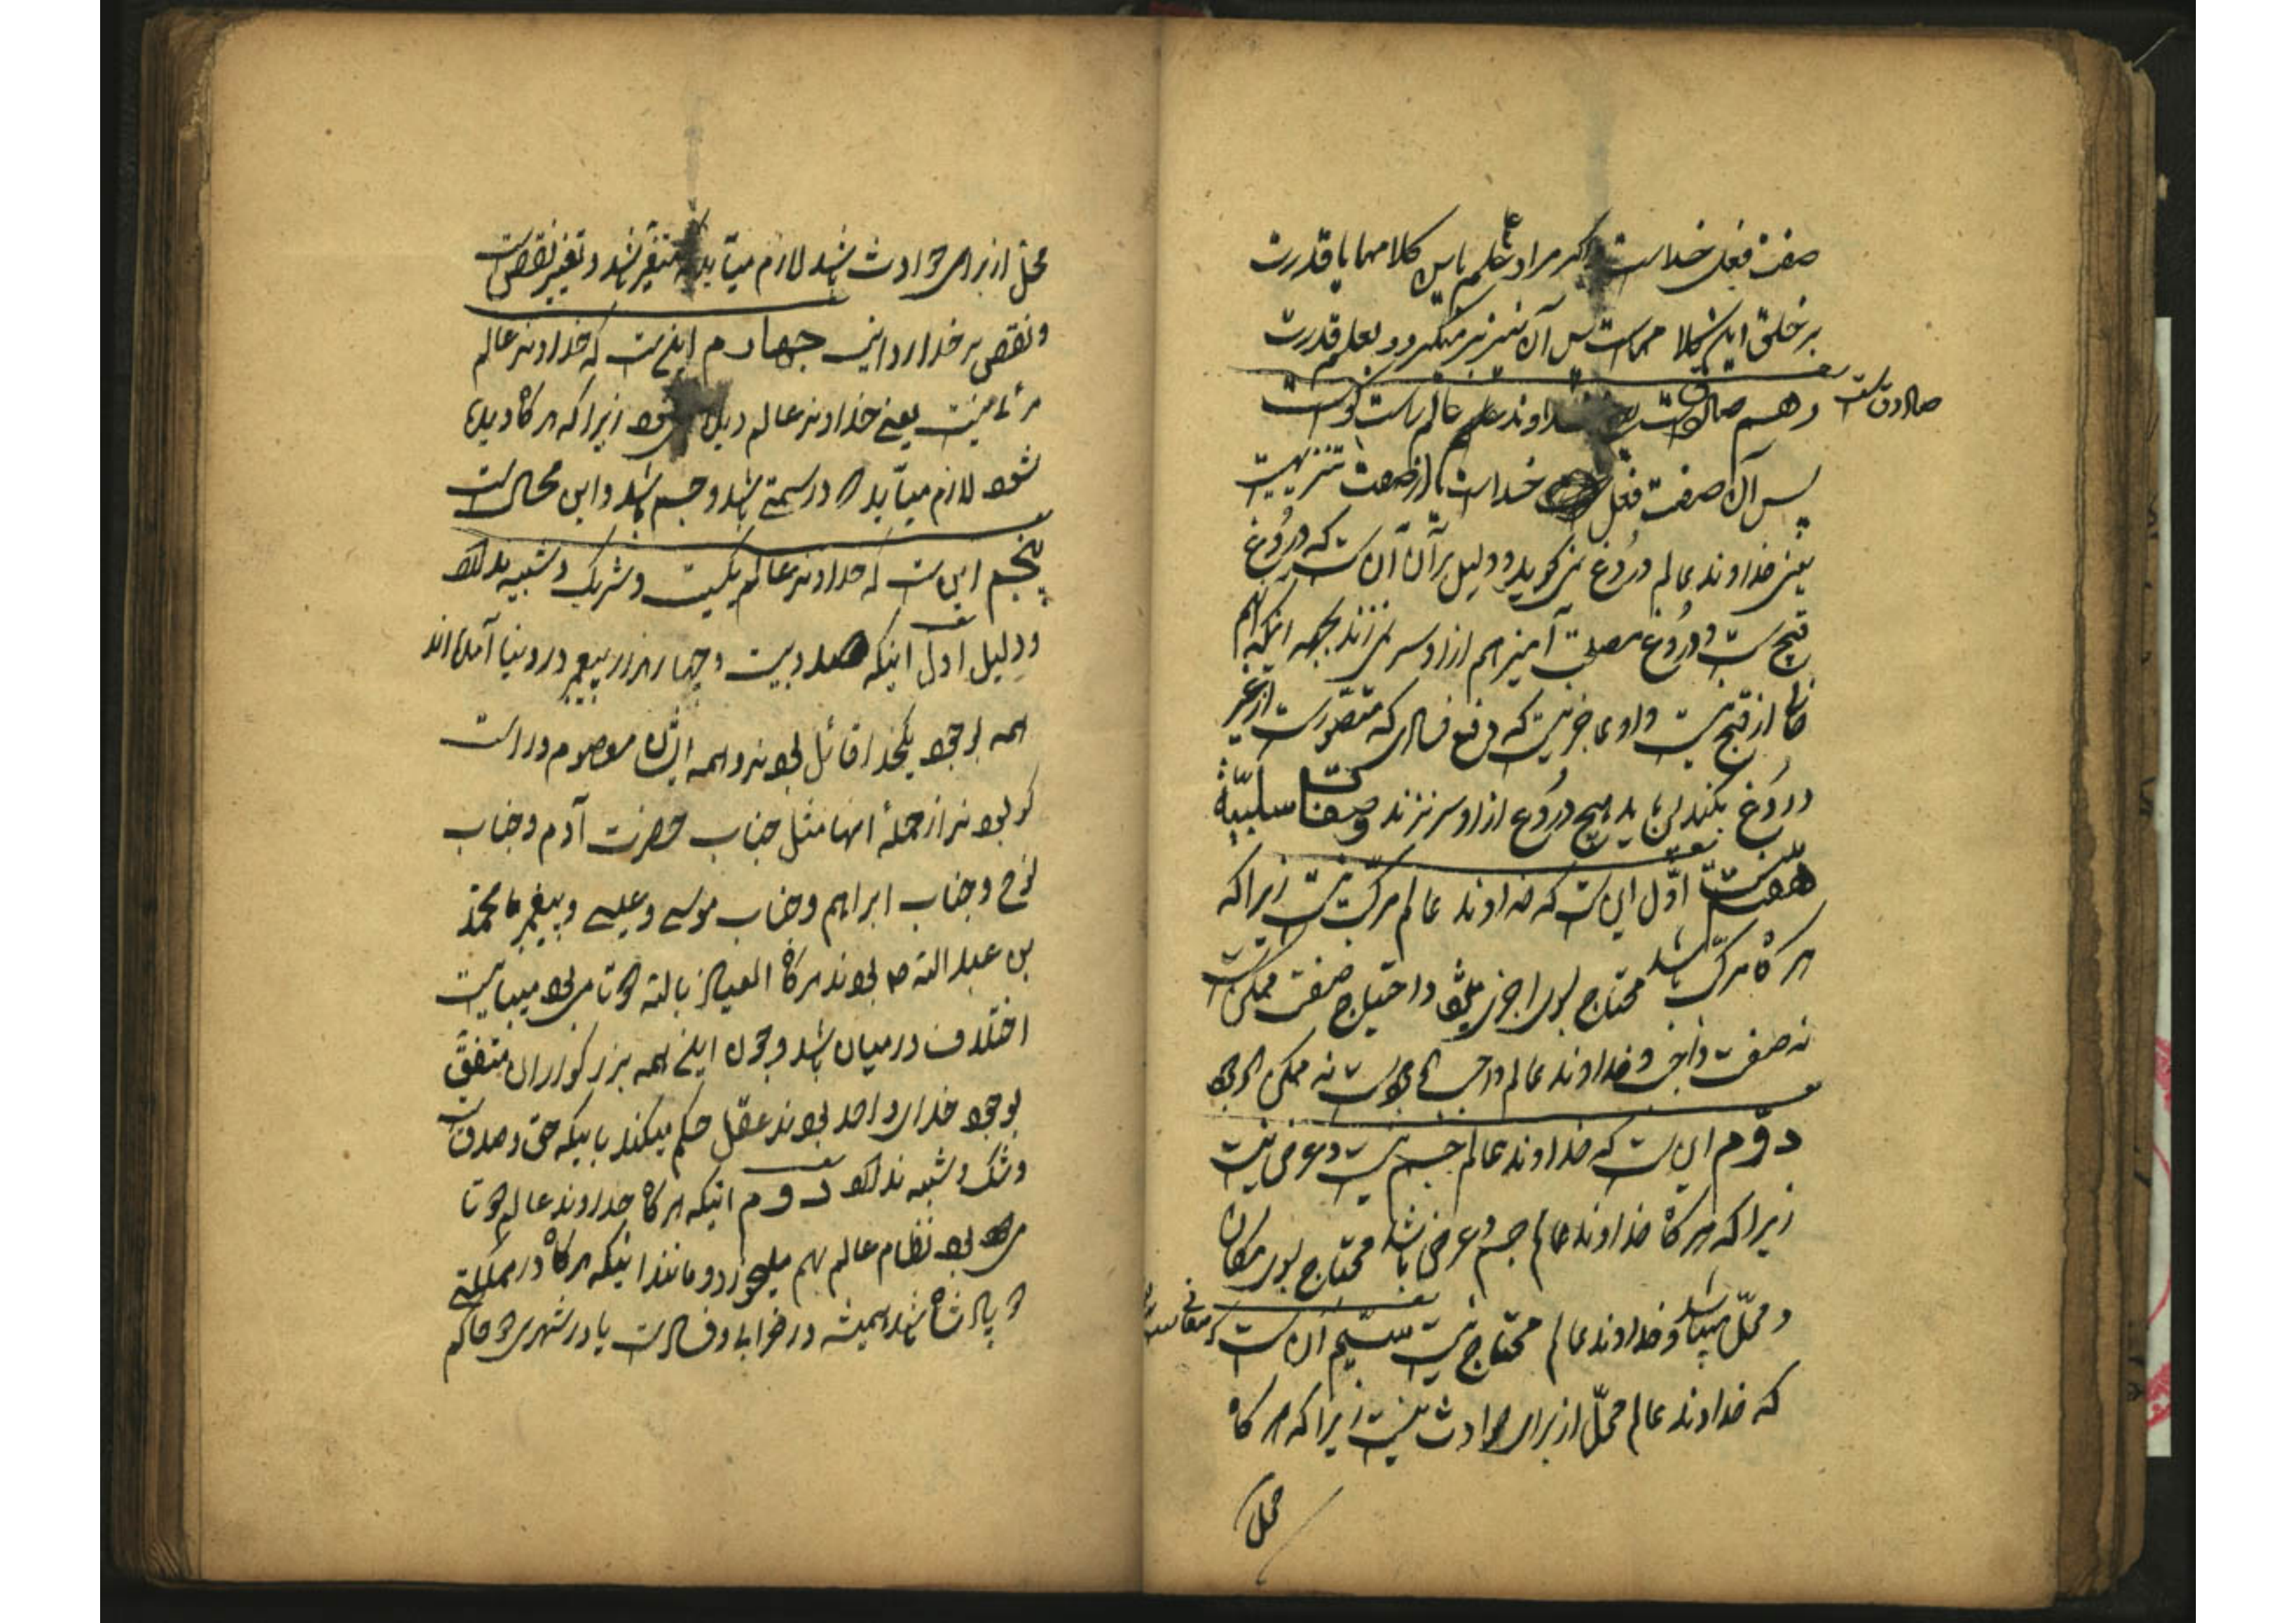 صفت فعل خداست اگر مراد علم باین کلامها یا قدرت
بر خلق این کلامهاست پس آن نیز بر میگردد بعلم و قدرت
صادق است
دهم صادق است خداوند عالم راست گو است
پس آن صفت فعل خداست یا از صفت تنزیهیت
یعنی خداوند عالم دروغ نمی گوید و دلیل بر آن آن است که دروغ
قبیح است و دروغ مصلحت آمیز هم از او سر نمی زند بجهه اینکه آنهم
خالی از قبح نیست و او عاجز نیست که دفع فسادی که متصور است از غیر
دروغ بکند پس باید هیچ دروغ از او سر نزند و صفات سلبیّه
هفت است اوّل این است که خداوند عالم مرکّب نیست زیرا که
هر گاه مرکّب باشد محتاج بسوی اجزا میشود و احتیاج صفت ممکن است
نه صفت واجب و خداوند عالم واجب الوجود است نه ممکن الوجود
دوّم این است که خداوند عالم جسم نیست و عرض نیست
زیرا که هر گاه خداوند عالم جسم و عرض باشد محتاج بسوی مکان
و محلّ میباشد و خداوند عالم محتاج نیست سیّم آن است
که خداوند عالم محلّ از برای حوادث نیست زیرا که هر گاه
محل
محلّ از برای حوادث باشد لازم میآید که متغیّر باشد و تغییر نقص است
و نقص بر خدا روا نیست چهارم اینست که خداوند عالم
مرئی نیست یعنی خداوند عالم دیده نمی شود زیرا که هر گاه دیده
شود لازم میآید که در سمتی باشد و جسم باشد و این محال است
پنجم این است که خداوند عالم یکیست و شریک و شبیه ندارد
و دلیل اوّل اینکه صد و بیست و چهار هزار پیغمبر در دنیا آمده اند
همه بوجود یکخدا قائل بودند و همه ایشان معصوم و راست
گو بودند از جملهٔ انها مثل جناب حضرت آدم و جناب
نوح و جناب ابراهیم و جناب موسی و عیسی و پیغمبر ما محمّد
بن عبد الله ص بودند هر گاه العیاذ بالله دو تا می بود میبایست
اختلاف در میان باشد و چون اینهمه بزرگواران متفقّ
بوجود خدای واحد بودند عقل حکم میکند باینکه حق و صدق است
و شک و شبهه ندارد دوم اینکه هر گاه خداوند عالم دو تا
می بود نظام عالم بهم میخورد و مانند اینکه هر گاه در مملکتی
دو پادشاه باشد همیشه در خرابی و فساد است یا در شهری دو حاکم